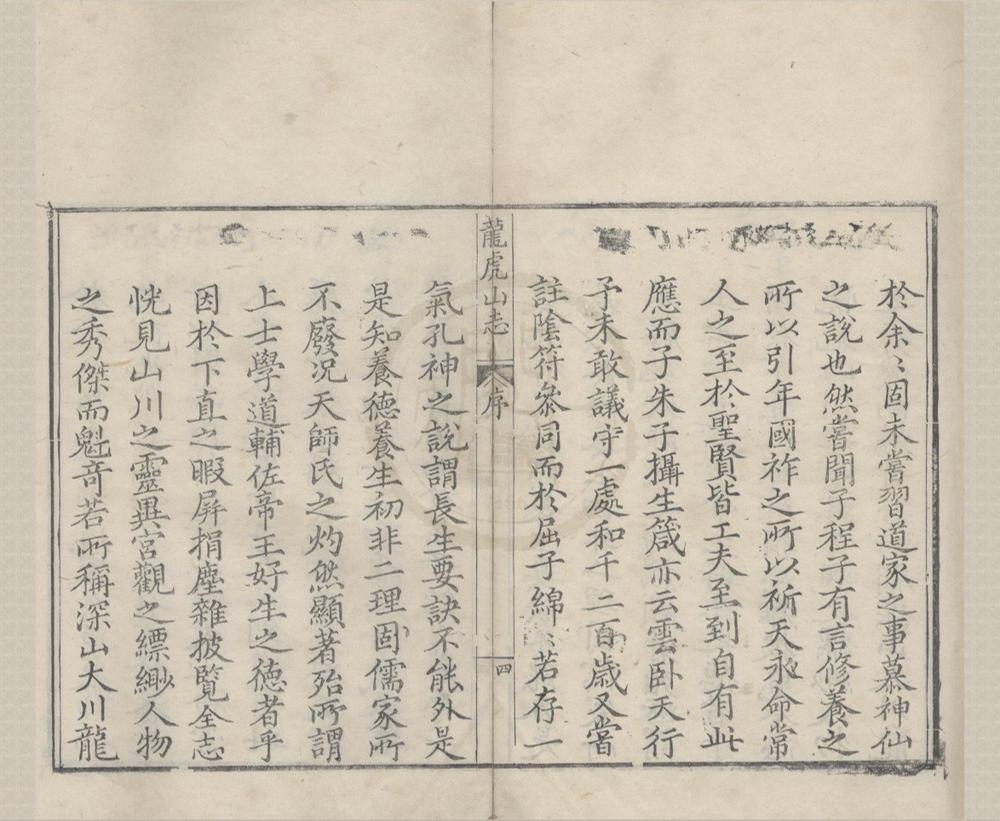 於余〻固未嘗習道家之事慕神仙
之說也然嘗聞子程子有言修養之
所以引年國祚之所以祈天永命常
人之至於聖賢皆工夫至到自有此
應而子朱子攝生箴亦云雲卧天行
予未敢議守一處和千二百歲又嘗
註隂符叅同而於屈子綿〻若存一
龍虎山志
序
四
氣孔神之說謂長生要訣不能外是
是知養德養生初非二理固儒家所
不廢况天師氏之灼然顯著殆所謂
上士學道輔佐帝王好生之德者乎
因於下直之暇屏捐塵雜披覽全志
恍見山川之靈異宮觀之縹緲人物
之秀傑而魁竒若所稱深山大川龍